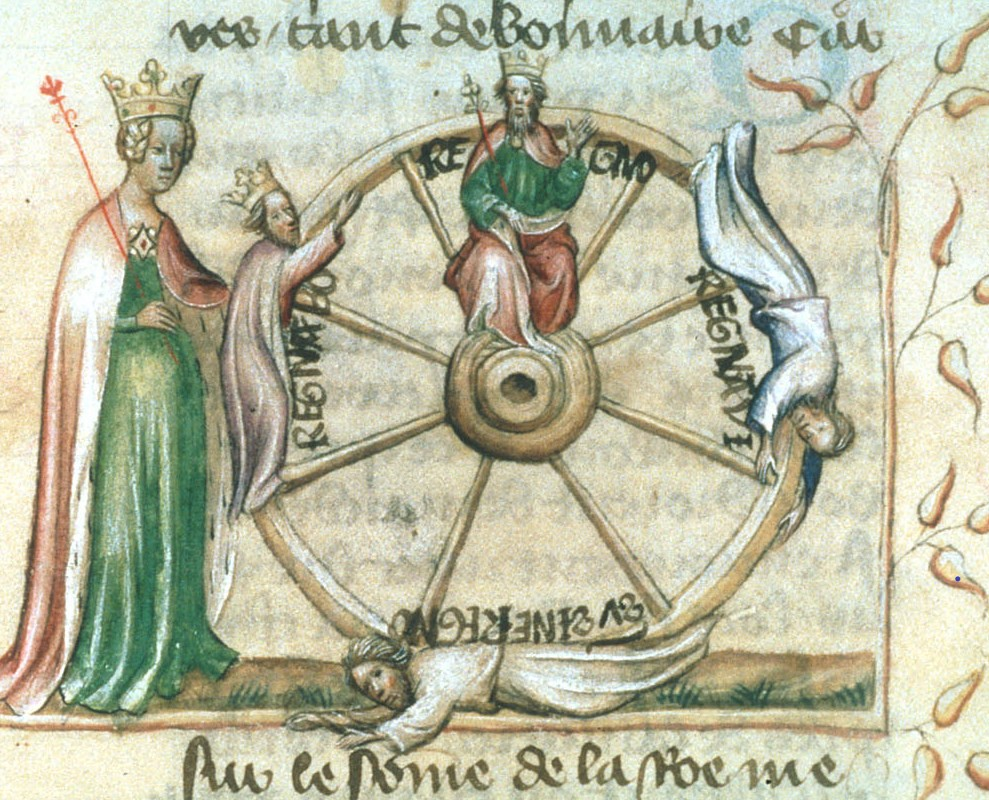 ver tant debonnaire Car
REGNO
REGNABO
REGNAVI
SU SINE REGNO
sur le some de la Roe me